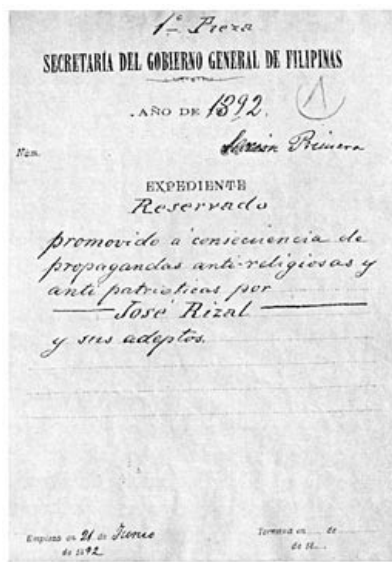 1ª Pieza
SECRETARÍA DEL GOBIERNO GENERAL DE FILIPINAS
AÑO DE 1892.
1
Sección Primera
Núm.
EXPEDIENTE
Reservado
promovido á consecuencia de
propagandas anti-religiosas y
anti patrióticas por
José Rizal
y sus adeptos.
Empieza en 21 de Junio
de 1892
Termina en ... de
de 18...